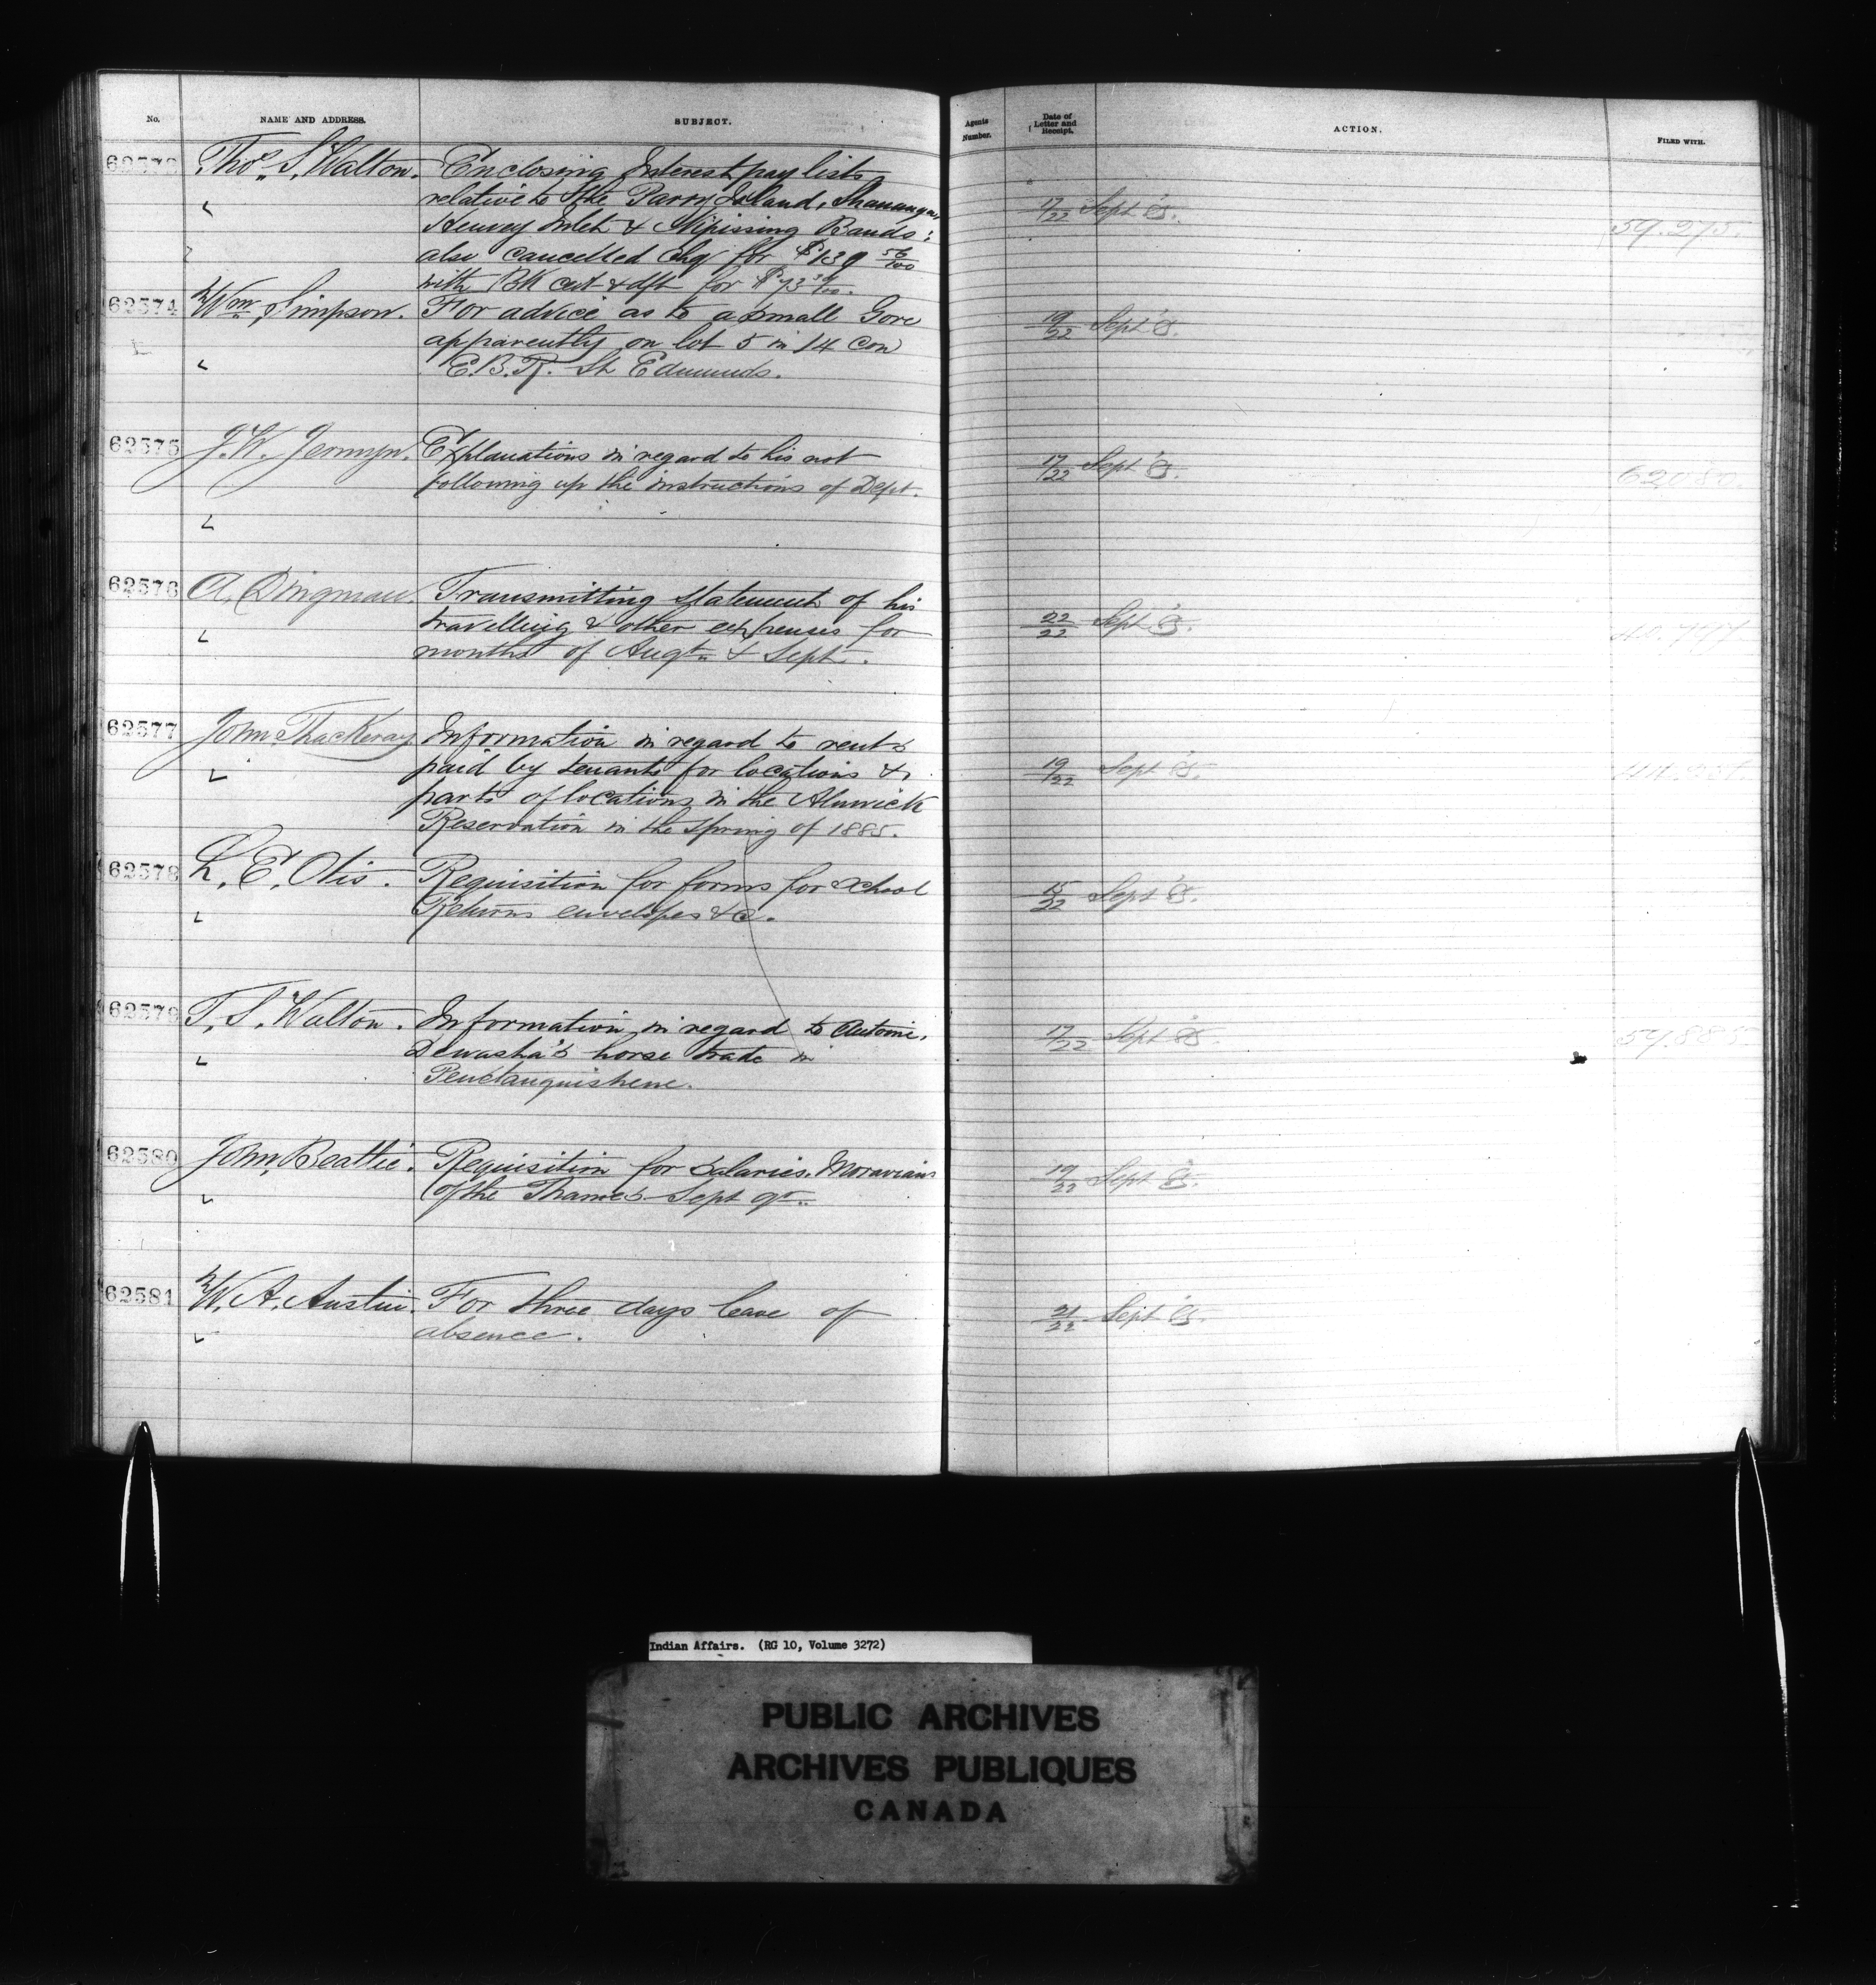 No. NAME AND ADDRESS. SUBJECT. Agents Number. Date of Letter and Receipt. ACTION. FILED WITH.
62573 Thos. S. Walton. Enclosing Interest pay lists
relative to the Parry Island, Shawanaga,
Henvey Inlet & Nipissing Bands: 17/22 Sept '85. 59.275.
also cancelled chq for $139 56/100
with BK cert & dft for $73
62574 Wm. Simpson. For advice as to a small Gore
apparently on lot 5 in 14 Con 19/22 Sept '85.
E.B.R. St Edmunds.
62575 J.W. Jermyn. Explanations in regard to his not
following up the instructions of Dept. 17/22 Sept '85. 62080.
62576 A. Dingman. Transmitting statement of his
travelling & other expenses for 22/22 Sept '85.
months of Augt. & Sept.
62577 John Thackeray Information in regard to rents
paid by tenants for locations & 19/22 Sept '85.
parts of locations in the Alnwick
Reservation in the Spring of 1885.
62578 L. E. Otis. Requisition for forms for School
Returns envelopes &c. 15/22 Sept '85.
62579 T. S. Walton. Information in regard to Antoine
Dewasha's horse trade in 17/22 Sept '85. 59.885
Penetanguishene.
62580 John Beattie. Requisition for salaries. Moravians
of the Thames Sept qr. 19/22 Sept '85.
62581 W. A. Austin. For three days leave of
absence. 21/22 Sept '85.
Indian Affairs. (RG 10, Volume 3272)
PUBLIC ARCHIVES
ARCHIVES PUBLIQUES
CANADA